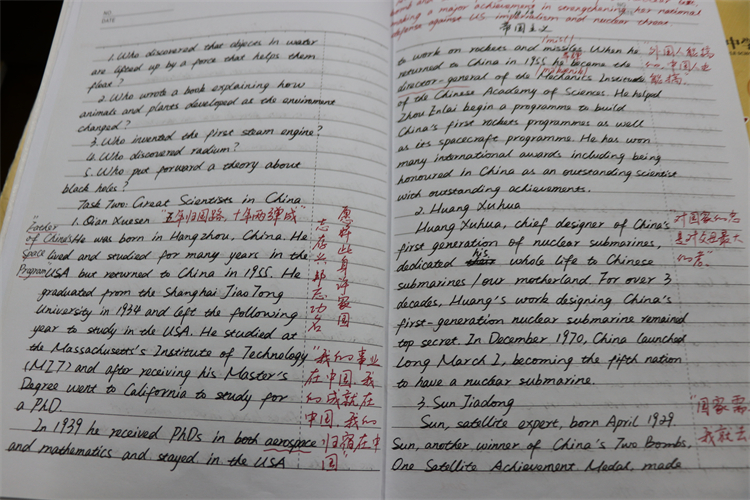 NO.
DATE
1. Who discovered that objects in water
are lifted up by a force that helps them
float?
2. Who wrote a book explaining how
animals and plants developed as the environment
changed?
3. Who invented the first steam engine?
4. Who discovered radium?
5. Who put forward a theory above
black holes?
Task Two: Great Scientists in China
1. Qian Xuesen "五年归国路 十年两弹成"
"Father of China's Space Program"
He was born in Hangzhou, China. He
lived and studied for many years in the
USA but returned to China in 1955. He
graduated from the Shanghai Jiao Tong
University in 1934 and left the following
year to study in the USA. He studied at
the Massachusetts's Institute of Technology
(MIT) and after receiving his Master's
Degree went to California to study for
a PhD.
In 1939 he received PhDs in both aerospace
and mathematics and stayed in the USA
"我的事业
在中国,我
的成就在
中国,我的
归宿在中
国"
making a major achievement in strengthening her national
defense against US imperialism and nuclear threat.
帝国主义
to work on rockets and missiles. When he
returned to China in 1955 he became the
director-general of the Mechanics Institute
of the Chinese Academy of Sciences. He helped
Zhou Enlai begin a programme to build
China's first rockets programmes as well
as its spacecraft programme. He has won
many international awards including being
honoured in China as an outstanding scientist
with outstanding achievements.
外国人能搞
的,中国人也
能搞.
2. Huang Xuhua
Huang Xuhua, chief designer of China's
first generation of nuclear submarines,
dedicated his whole life to Chinese
submarines / our motherland. For over 3
decades, Huang's work designing China's
first-generation nuclear submarine remained
top secret. In December 1970, China launched
Long March I, becoming the fifth nation
to have a nuclear submarine.
对国家的忠
是对父母最大
的孝"
3. Sun Jiadong
Sun, satellite expert, born April 1929.
Sun, another winner of China's Two Bombs,
One Satellite Achievement Medal, made
"国家需
我就去